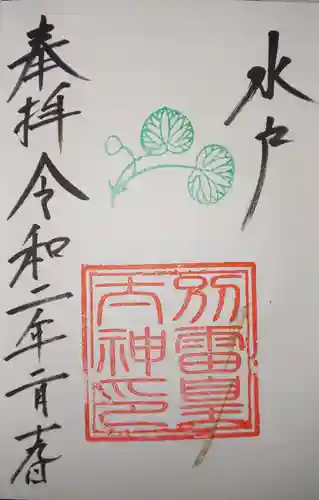 水戸
別雷皇
太神印
奉拝令和二年二月春